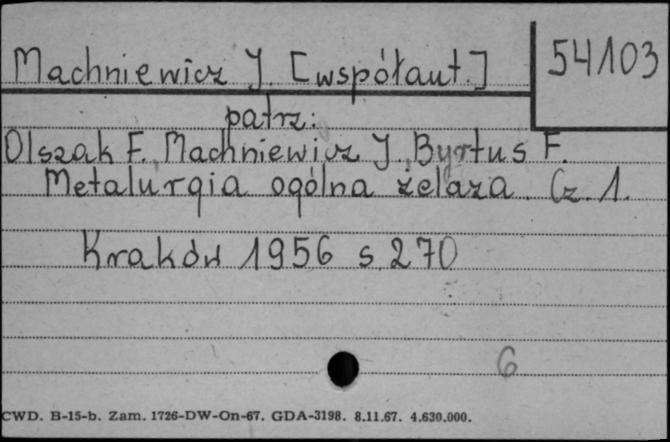 Machniewicz J. [współaut.]
54103
patrz:
Olszak F., Machniewicz J., Byrtus F.
Metalurgia ogólna żelaza. Cz. 1.
Kraków 1956 s. 270
6
CWD. B-15-b. Zam. 1726-DW-On-67. GDA-3198. 8.11.67. 4.630.000.